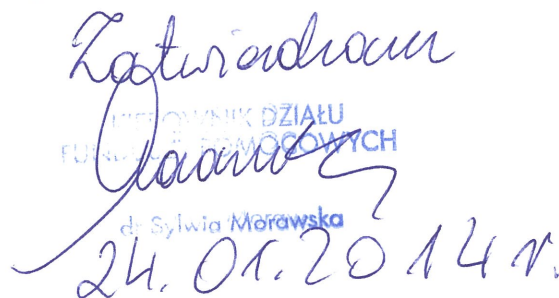 Zatwierdzam
KIEROWNIK DZIAŁU
FUNDUSZY POMOCOWYCH
dr Sylwia Morawska
24.01.2014 r.